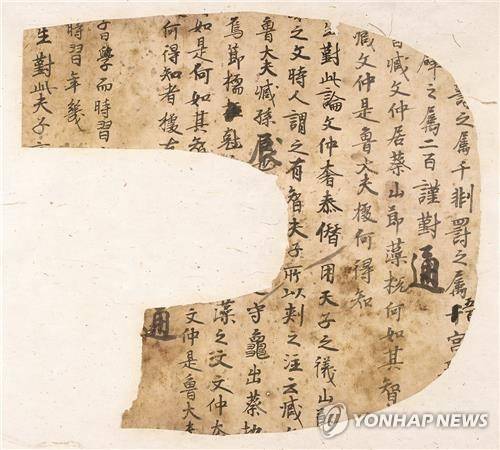 罸之属千剕罸之属
辟之属二百謹對
通
臧文仲居蔡山節藻梲何如其智
臧文仲是魯大夫據何得知
對此論文仲奢泰僭用天子之儀山節
之文時人謂之有智夫子所以刺之注云臧
魯大夫臧孫辰
守龜出蔡地
焉節
藻之文文仲
如是何如其智
文仲是魯大夫
通
何得知者據
曰學而時習
時習年幾
生對此夫子
YONHAP NEWS